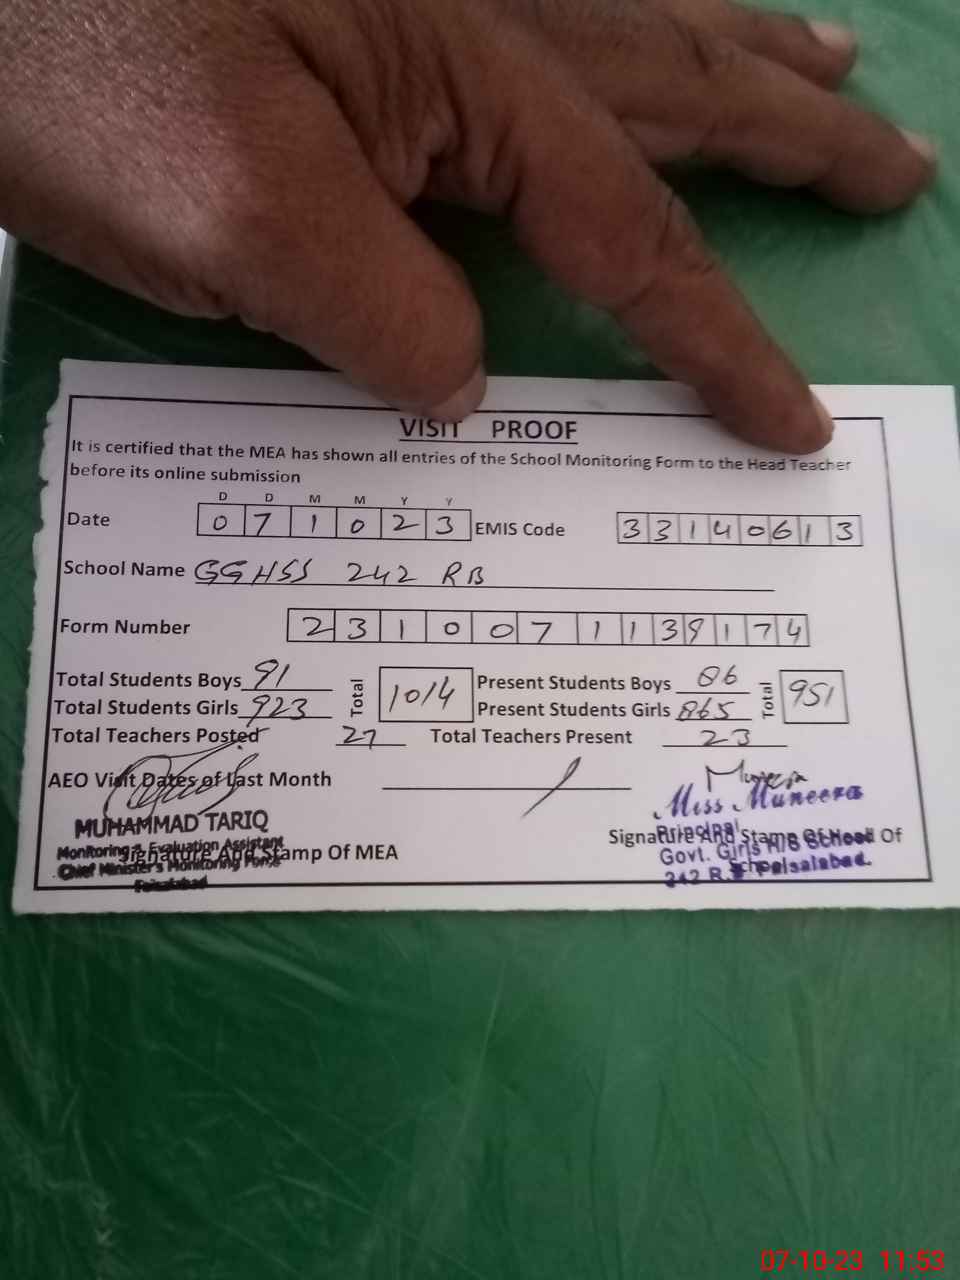 VISIT PROOF
It is certified that the MEA has shown all entries of the School Monitoring Form to the Head Teacher
before its online submission
D D M M Y Y
Date 0 7 1 0 2 3 EMIS Code 3 3 1 4 0 6 1 3
School Name GGHSS 242 RB
Form Number 2 3 1 0 0 7 1 1 3 9 1 7 4
Total Students Boys 91 Total 1014 Present Students Boys 86 Total 951
Total Students Girls 923 Present Students Girls 865
Total Teachers Posted 27 Total Teachers Present 23
AEO Visit Dates of Last Month
Muneera
Miss Muneera
MUHAMMAD TARIQ
Principal
Signature And Stamp Of Head Of
School
Monitoring & Evaluation Assistant
Signature And Stamp Of MEA
Govt. Girls H/S School
Chief Minister's Monitoring Force
242 R.B Faisalabad.
Faisalabad
07-10-23 11:53